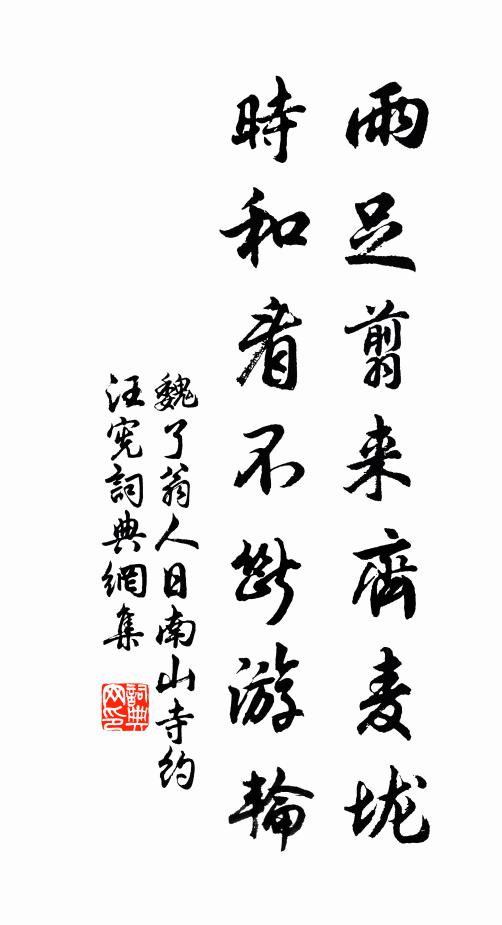 雨足翦来齊麦垅
時和看不斷游輪
魏了翁人日南山寺约
汪宪詞典網集
詞典网印